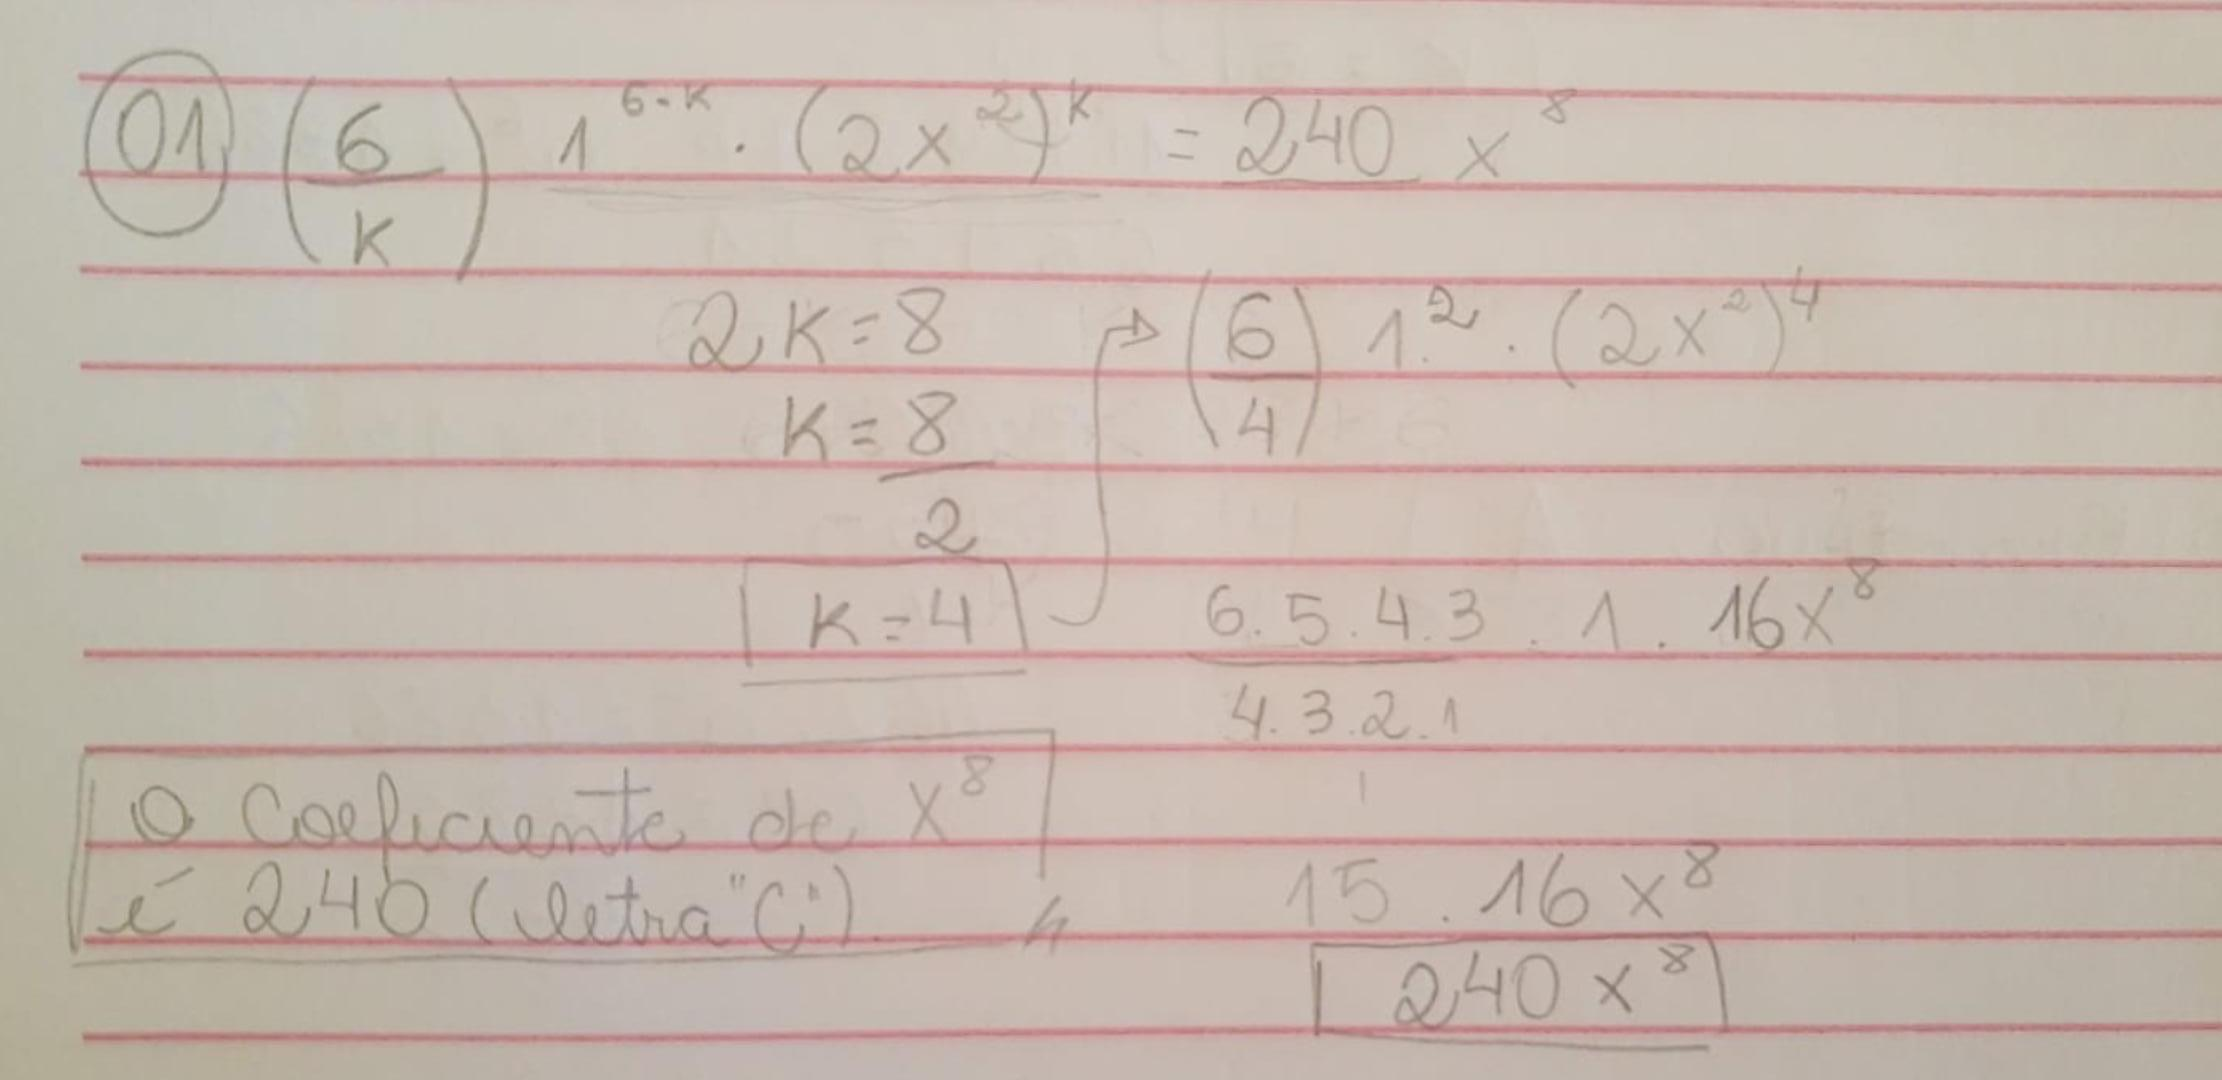 01 (6/K) 1^6-K . (2x^2)^K = 240 x^8
2K=8
K=8/2
K=4
(6/4) 1^2 . (2x^2)^4
6.5.4.3/4.3.2.1 . 1 . 16x^8
15 . 16x^8
240x^8
O Coeficiente de x^8
é 240 (letra "C").